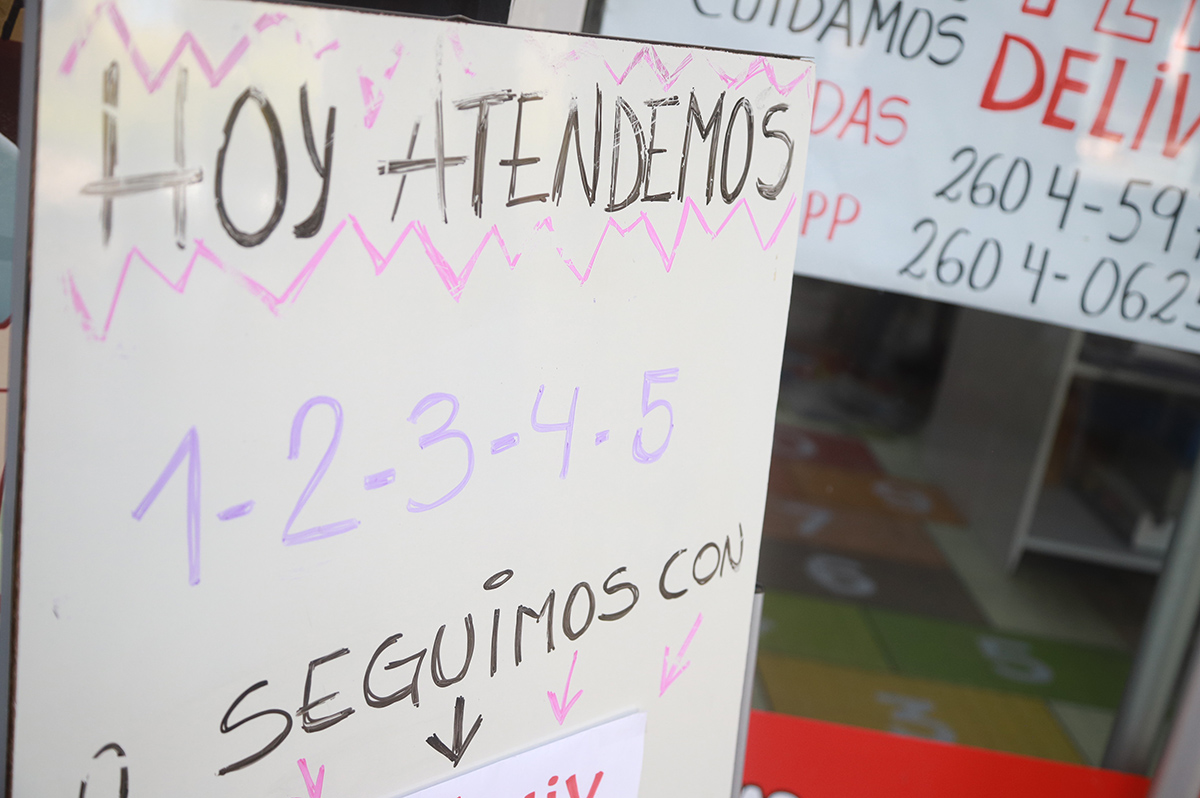 HOY ATENDEMOS
1-2-3-4-5
SEGUIMOS CON
CUIDAMOS
DELIV
DAS
2604-597
PP
2604-0625
7
6
5
3